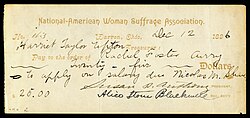 National-American Woman Suffrage Association.
Warren, Ohio, Dec 12 1896
Harriet Taylor Upton Treasurer
Pay to the order of Rachel Foster Avery
Twenty-five Dollars
To apply on salary due Nicolas M.
Susan B. Anthony
Alice Stone Blackwell